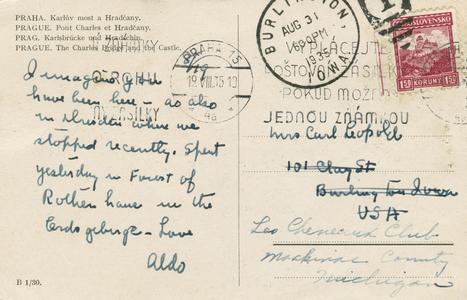 PRAHA. Karlův most a Hradčany.
PRAGUE. Pont Charles et Hradčany.
PRAG. Karlsbrücke und Hradschin.
PRAGUE. The Charles Bridge and the Castle.
PRAHA 15
19.VIII.35-13
BURLINGTON,
AUG 31
6 PM
1935
IOWA
ČESKOSLOVENSKO
1·50 KORUNY 1·50
JEDNOU ZNÁMKOU
I imagine you
have been here - as also
in Dresden where we
stopped recently. Spent
yesterday in Forest of
Rothenhaus in the
Erdsgebirge - Love
Aldo
Mrs Carl Leopold
101 Clay St
Burlington Iowa
USA
Les Cheneaux Club
Mackinac County
Michigan
B 1/30.